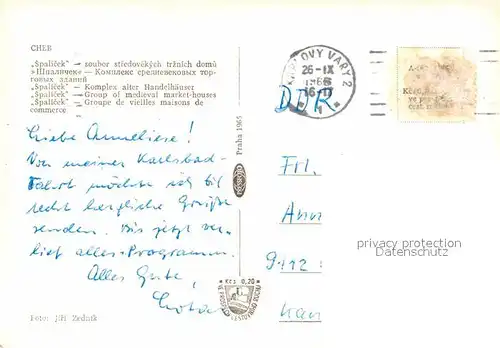 CHEB
„Špalíček" — soubor středověkých tržních domů
»Шпаличек« — Комплекс средневековых тор-
говых зданий
„Špalíček" — Komplex alter Handelhäuser
„Špalíček" — Group of medieval market-houses
„Špalíček" — Groupe de vieilles maisons de
commerce
Liebe Anneliese!
Von meiner Karlsbad-
Fahrt möchte ich Dir
recht herzliche Grüße
senden. Bis jetzt ver-
lief alles Programm.
Alles Gute,
Lothar
Foto: Jiří Zedník
Praha 1965
Kčs 0,20
KARLOVY VARY 2
26-IX
16-17
1
DDR
Frl.
Ann
9112
privacy protection
Datenschutz